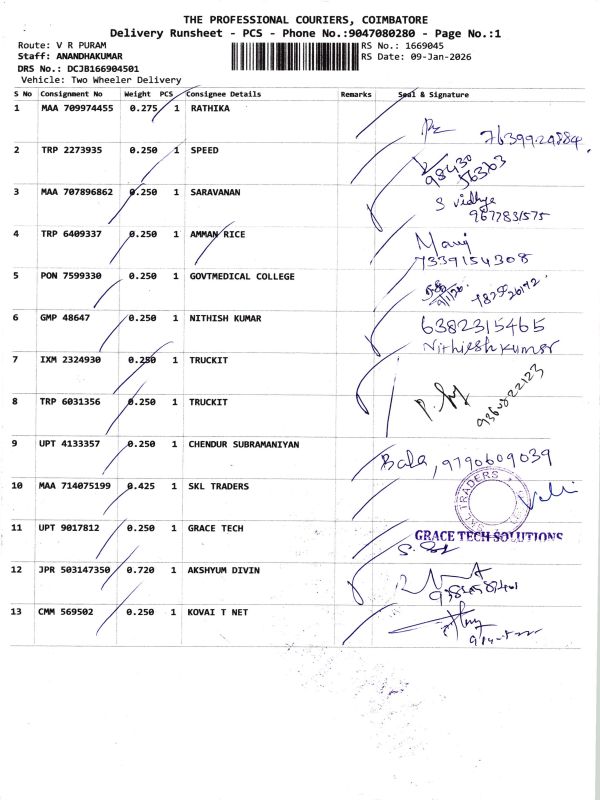 THE PROFESSIONAL COURIERS, COIMBATORE
Delivery Runsheet - PCS - Phone No.:9047080280 - Page No.:1
Route: V R PURAM
RS No.: 1669045
Staff: ANANDHAKUMAR
RS Date: 09-Jan-2026
DRS No.: DCJB166904501
Vehicle: Two Wheeler Delivery
S No Consignment No Weight PCS Consignee Details Remarks Seal & Signature
1 MAA 709974455 0.275 1 RATHIKA
2 TRP 2273935 0.250 1 SPEED
3 MAA 707896862 0.250 1 SARAVANAN
S Vidhya
9677831575
4 TRP 6409337 0.250 1 AMMAN RICE
Mani
7339154308
5 PON 7599330 0.250 1 GOVTMEDICAL COLLEGE
6 GMP 48647 0.250 1 NITHISH KUMAR
6382315465
Nithiesh Kumar
7 IXM 2324930 0.250 1 TRUCKIT
8 TRP 6031356 0.250 1 TRUCKIT
9 UPT 4133357 0.250 1 CHENDUR SUBRAMANIYAN
Bala, 9790609039
10 MAA 714075199 0.425 1 SKL TRADERS
SKL TRADERS
11 UPT 9017812 0.250 1 GRACE TECH
GRACE TECH SOLUTIONS
12 JPR 503147350 0.720 1 AKSHYUM DIVIN
13 CMM 569502 0.250 1 KOVAI T NET